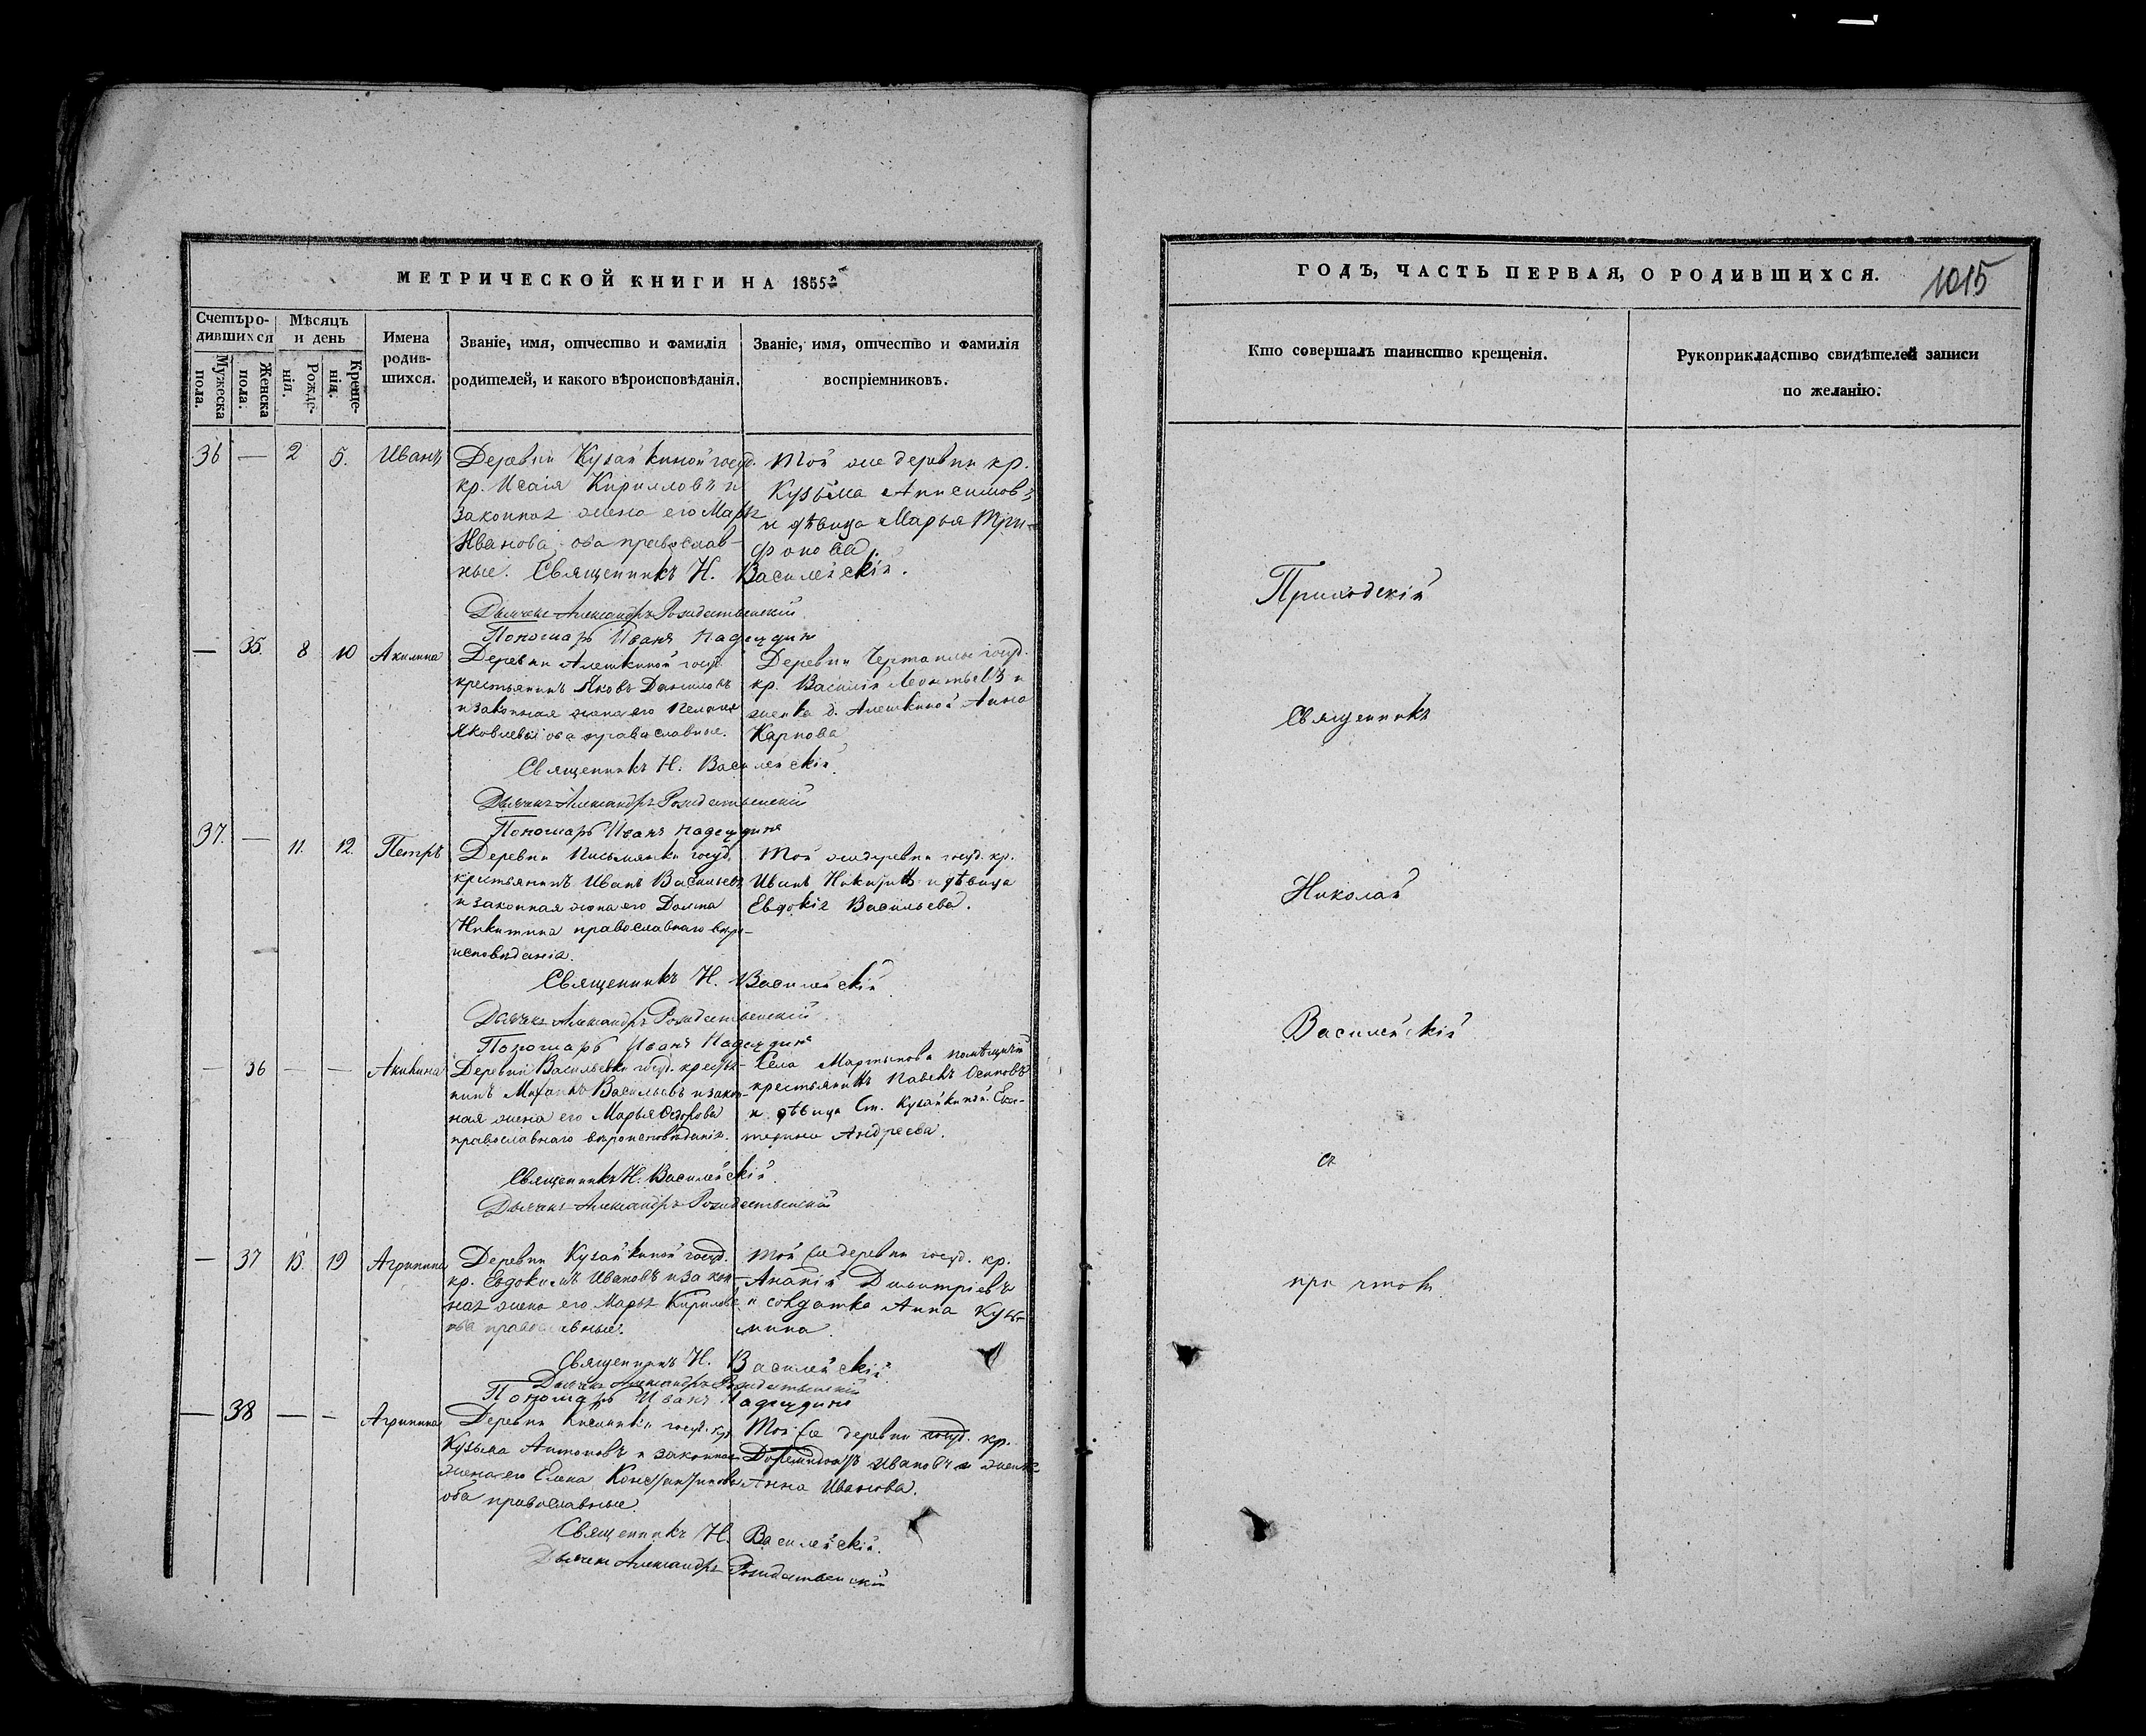 МЕТРИЧЕСКОЙ КНИГИ НА 1855й
Счетъ ро-
дившихся
Мужеска пола.
Женска пола.
Мѣсяцъ и день
Рожде-
нія.
Креще-
нія.
Имена
родив-
шихся.
Званіе, имя, отчество и фамилія
родителей, и какого вѣроисповѣданія.
Званіе, имя, отчество и фамилія
воспріемниковъ.
36 — 2 5. Иванъ
Деревни Кузайкиной госуд.
кр. Исаія Кирилловъ и
законная жена его Марья
Иванова, оба православ-
ные. Священникъ Н. Василейскій.
Той же деревни кр.
Кузьма Анисимовъ
и дѣвица Марья Три-
фонова.
Дьячекъ Александръ Рождественскій
Пономарь Иванъ Надеждинъ
— 35. 8 10 Акилина
Деревни Алешкиной госуд.
крестьянинъ Яковъ Даниловъ
и законная жена его Пелагея
Яковлева оба православные.
Деревни Чертанлы госуд.
кр. Василій Леонтьевъ и
женка д. Алешкиной Анна
Карпова
Священникъ Н. Василейскій.
Дьячекъ Александръ Рождественскій
Пономарь Иванъ Надеждинъ
37. — 11. 12. Петръ
Деревни Письмянки госуд.
крестьянинъ Иванъ Васильевъ
и законная жена его Домна
Никитина православнаго вѣро-
исповѣданія.
Той же деревни госуд. кр.
Иванъ Никитинъ и дѣвица
Евдокія Васильева.
Священникъ Н. Василейскій
Дьячекъ Александръ Рождественскій.
Пономарь Иванъ Надеждинъ
— 36 — — Акилина
Деревни Васильевки госуд. крестья-
нинъ Михаилъ Васильевъ и закон-
ная жена его Марья Федорова
православнаго вѣроисповѣданія.
Села Мартынова помѣщичій
крестьянинъ Павелъ Осиповъ
и дѣвица Ст. Кузайкиной Ека-
терина Андреева.
Священникъ Н. Василейскій.
Дьячекъ Александръ Рождественскій
— 37 13. 19 Агрипина
Деревни Кузайкиной госуд.
кр. Евдокимъ Ивановъ и закон-
ная жена его Марья Кирилова
оба православные.
Той же деревни госуд. кр.
Ананій Димитріевъ
и солдатка Анна Кузь-
мина.
Священникъ Н. Василейскій.
Дьячекъ Александръ Рождественскій
Пономарь Иванъ Надеждинъ
— 38 — — Агрипина
Деревни госуд. кр.
Кузьма Антоновъ и законная
жена его Елена Константинова
оба православные.
Той же деревни госуд. кр.
Ивановъ и женка
Анна Иванова.
Священникъ Н. Василейскій.
Дьячекъ Александръ Рождественскій
ГОДЪ, ЧАСТЬ ПЕРВАЯ, О РОДИВШИХСЯ.
1015
Кто совершалъ таинство крещенія.
Рукоприкладство свидѣтелей записи
по желанію.
Приходскій
Священникъ
Николай
Василейскій
съ
причтомъ